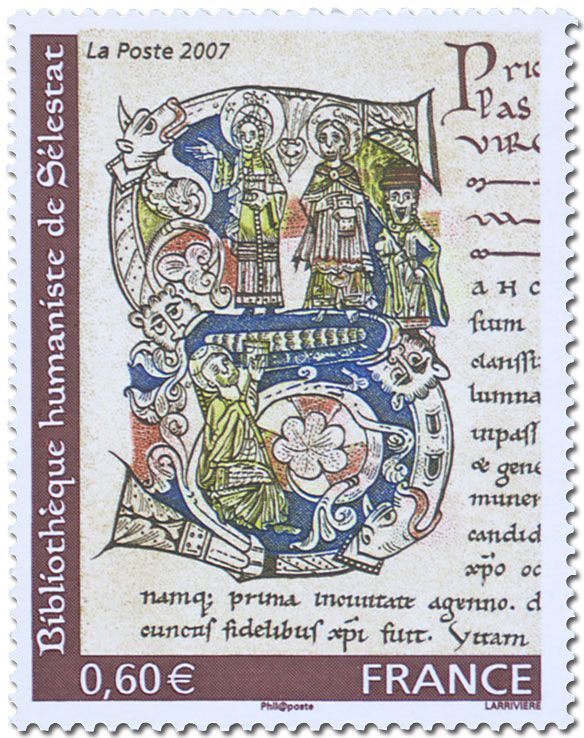 La Poste 2007
Bibliothèque humaniste de Sélestat
Pric
las
VIRG
AHC
fuim
clarissi
lumna
inpass
& gene
muner
candid
xp̅o oc
namq; prima inciuitate agenno. d
cunctis fidelibus xp̅i fuit. Vitam
0,60 €
FRANCE
Phil@poste
LARRIVIÈRE